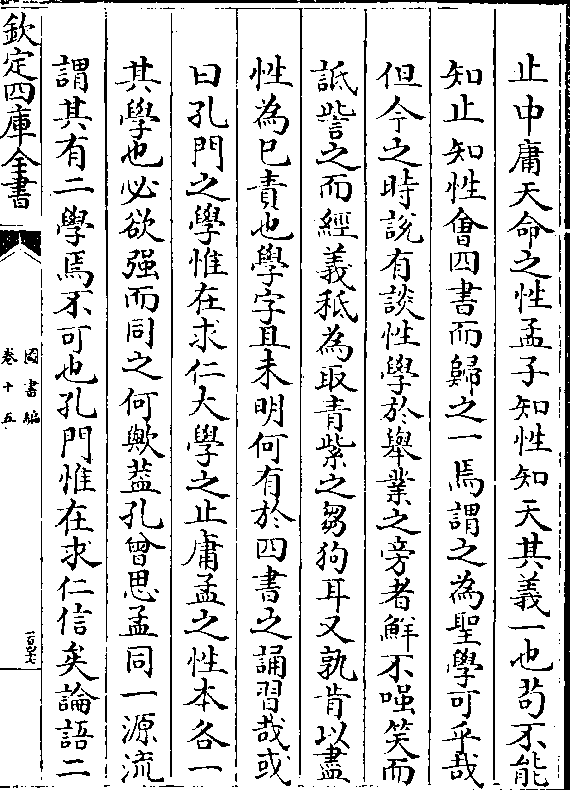 止中庸天命之性孟子知性知天其義一也茍不能
知止知性會四書而歸之一焉謂之為聖學可乎哉
但今之時說有談性學於舉業之旁者鮮不嗤笑而
詆訾之而經義秖為取青紫之芻狗耳又孰肯以盡
性為已責也學字且未明何有於四書之誦習哉或
曰孔門之學惟在求仁大學之止庸孟之性本各一
其學也必欲强而同之何歟葢孔曾思孟同一源流
謂其有二學焉不可也孔門惟在求仁信矣論語二
欽定四庫全書
圖書編
卷十五